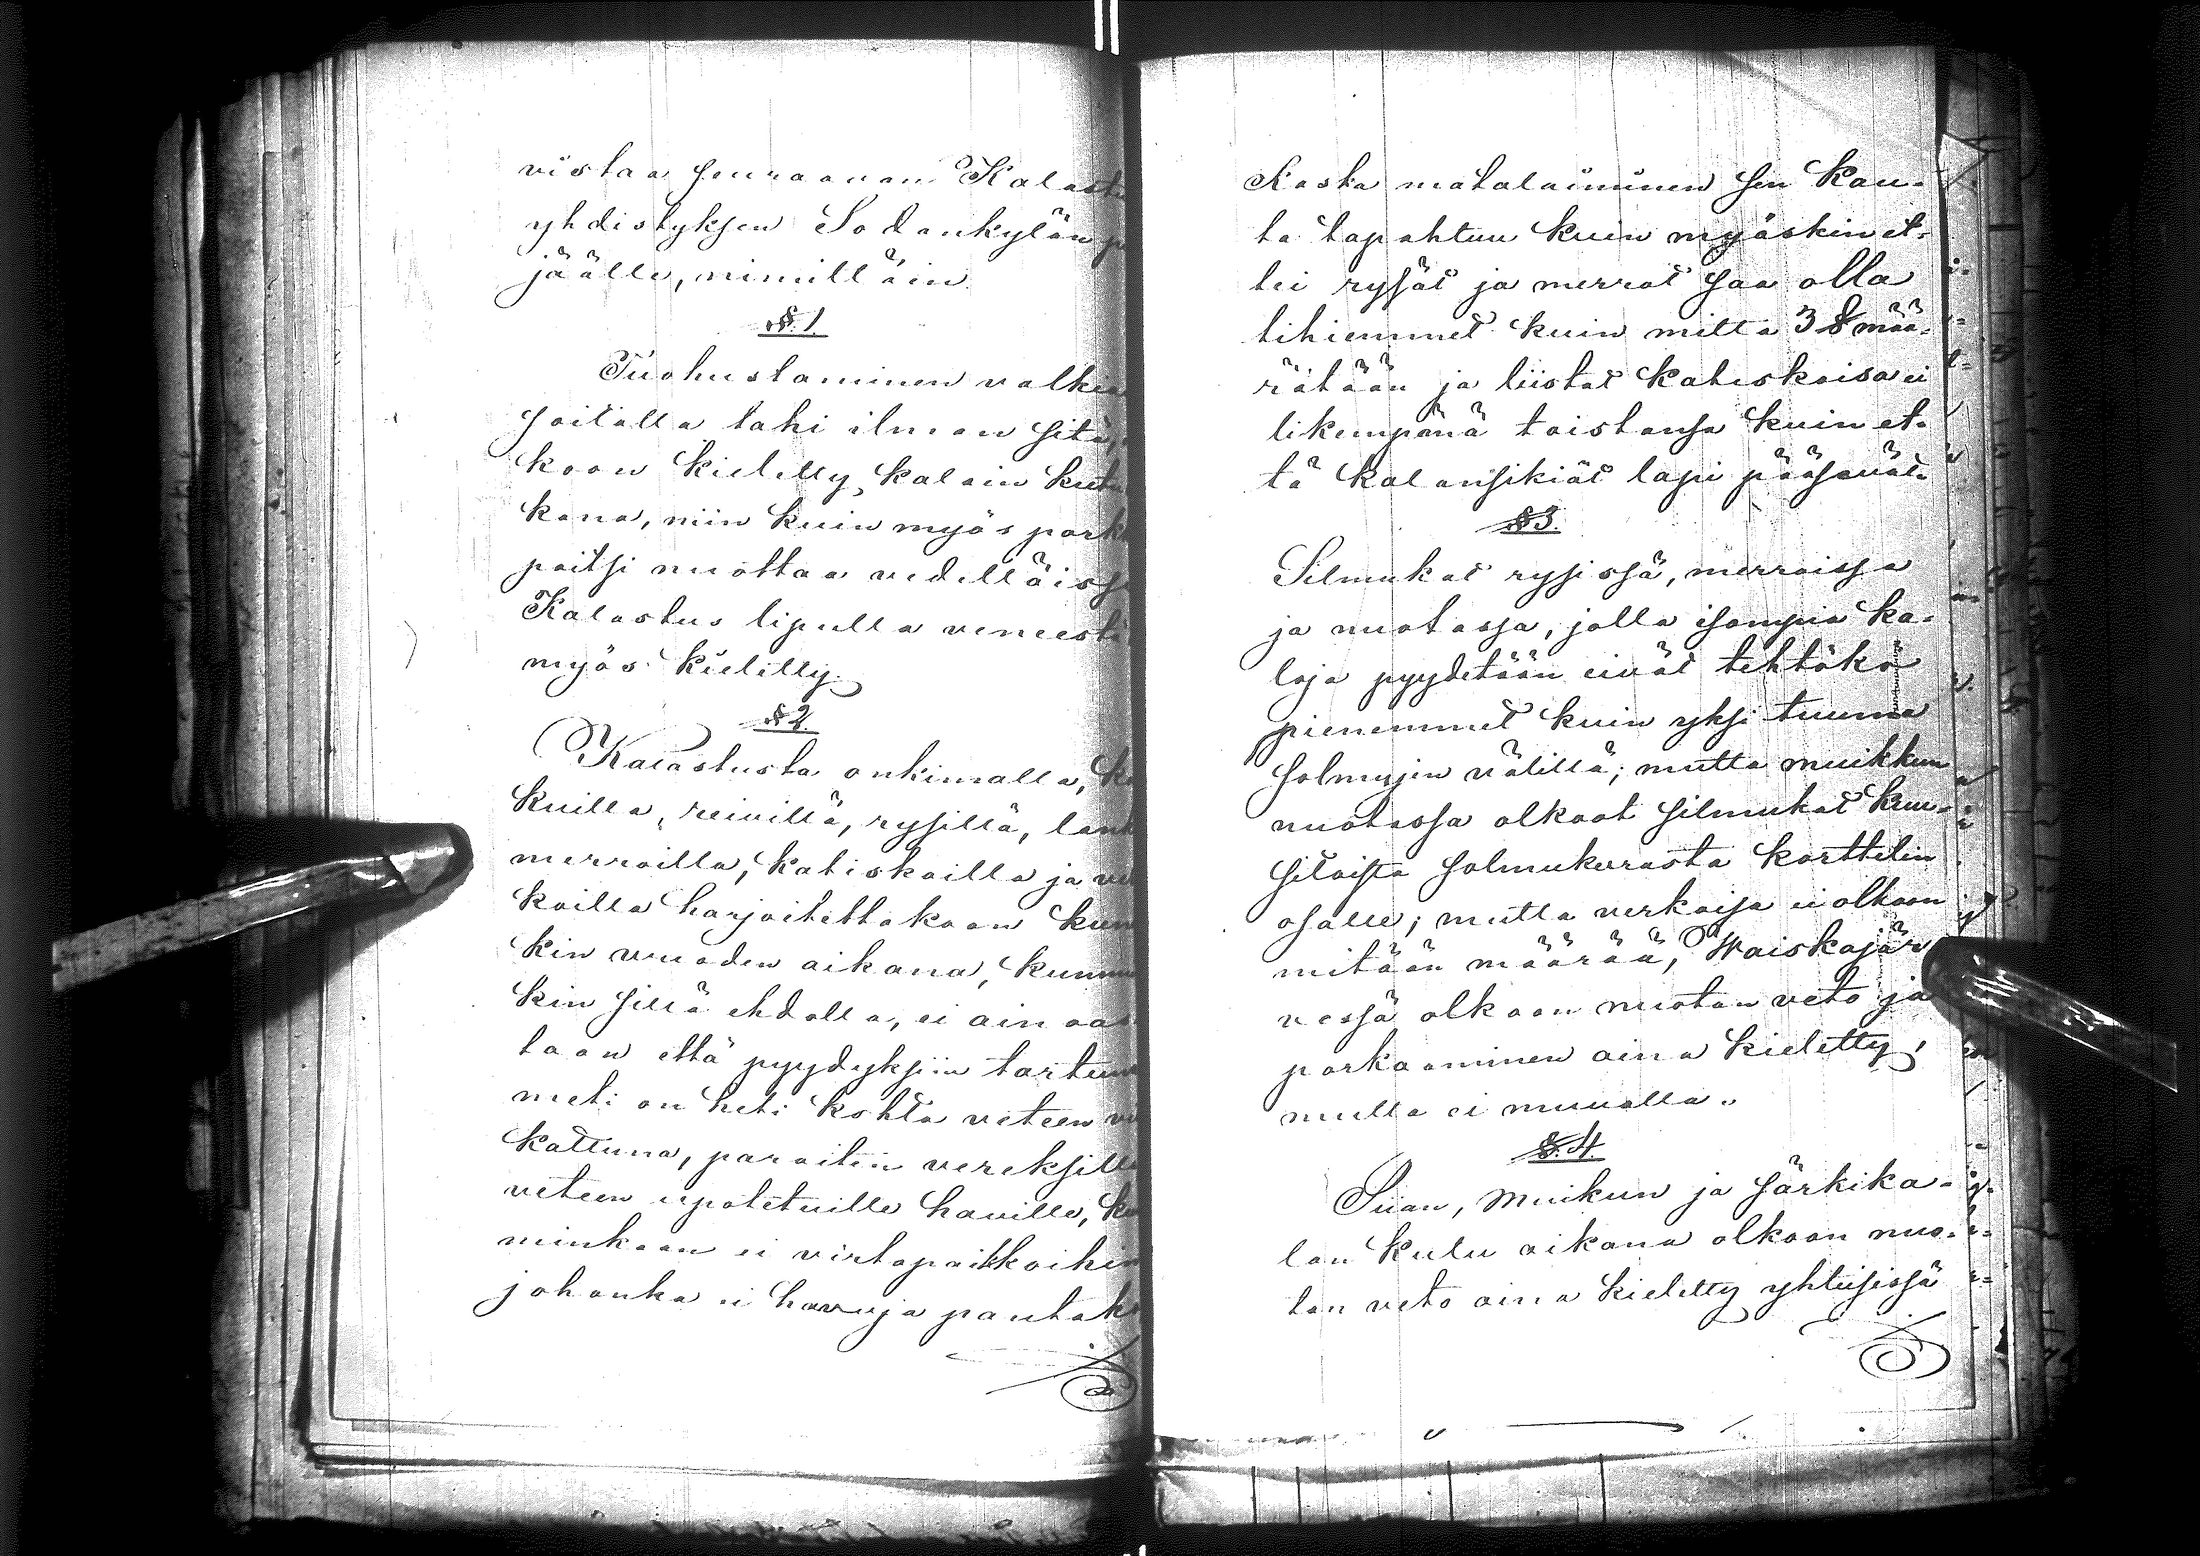 vistaa seuraavan Kalast
yhdistyksen Sodankylän p
jäälle, nimittäin.
§. 1.
Tuohustaminen valkea
soitolla tahi ilman sitä,
koon kieletty kalain kutu
kana, niin kuin myös park
paitsi nuottaa vedettäiss
Kalastus lipulla veneest
myös kieletty.
§ 2.
Kalastusta onkimalla, ko
kuilla, reivillä, rysillä, lant
merroilla, katiskoilla ja ve
koilla harjoitettakoon kun
kin vuoden aikana, kumm
kin sillä ehdolla, ei ain oas
taan että pyydyksiin tartun
neti on heti kohta veteen vi
kattuna, paraiten vereksill
veteen upotetuille haville, ku
minkään ei virtapaikkoihin
johonka ei havuja pantak
Koska matalaiminen sen kau-
ta tapahtuu kuin myöskin et-
tei rysät ja merrat saa olla
tihiemmet kuin mitta 3 § mää-
rätään ja liistat katiskoisa ei
likempänä toistansa kuin et-
tä kalansikiät läpi pääsevät.
§ 3.
Silmukat rysissä, merroissa
ja nuotassa, jolla isompia ka-
loja pyydetään eivät tehtäkö
pienemmet kuin yksi tuuma
solmujen välillä; mutta muikkun
nuotassa olkoot silmukat kuu-
sitoista solmukerrasta korttelin
osalle; mutta verkoisa ei olkoon
mitään määrää, Waiskojär
vessä olkoon nuotan veto ja
porkaaminen aina kieletty,
mutta ei muualla.
§. 4.
Siian, Muikun ja särkika-
lan kutu aikana olkoon nuo-
tan veto aina kieletty yhteisissä